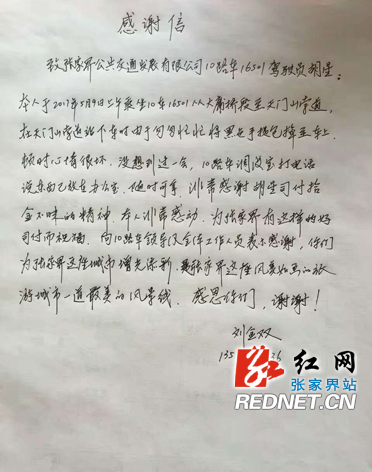 感谢信
致张家界公共交通发展有限公司10路车16501驾驶员胡星:
本人于2017年5月9日上午乘坐10路16501从大庸桥段至天门山索道,
在天门山索道站下车时由于匆匆忙忙将黑色手提包掉至车上.
顿时心情很坏. 没想到过一会, 10路车调度室打电话
说东西已放在办公室. 随时可拿. 非常感谢胡星司付拾
金不昧的精神. 本人非常感动. 为张家界有这样的好
司付而祝福. 向10路车领导及全体工作人员表示感谢, 你们
为张家界这座城市增光添彩, 是张家界这座风景如画的旅
游城市一道最美的风景线. 感恩你们, 谢谢!
刘金双
135 26
红网
张家界站
REDNET.CN